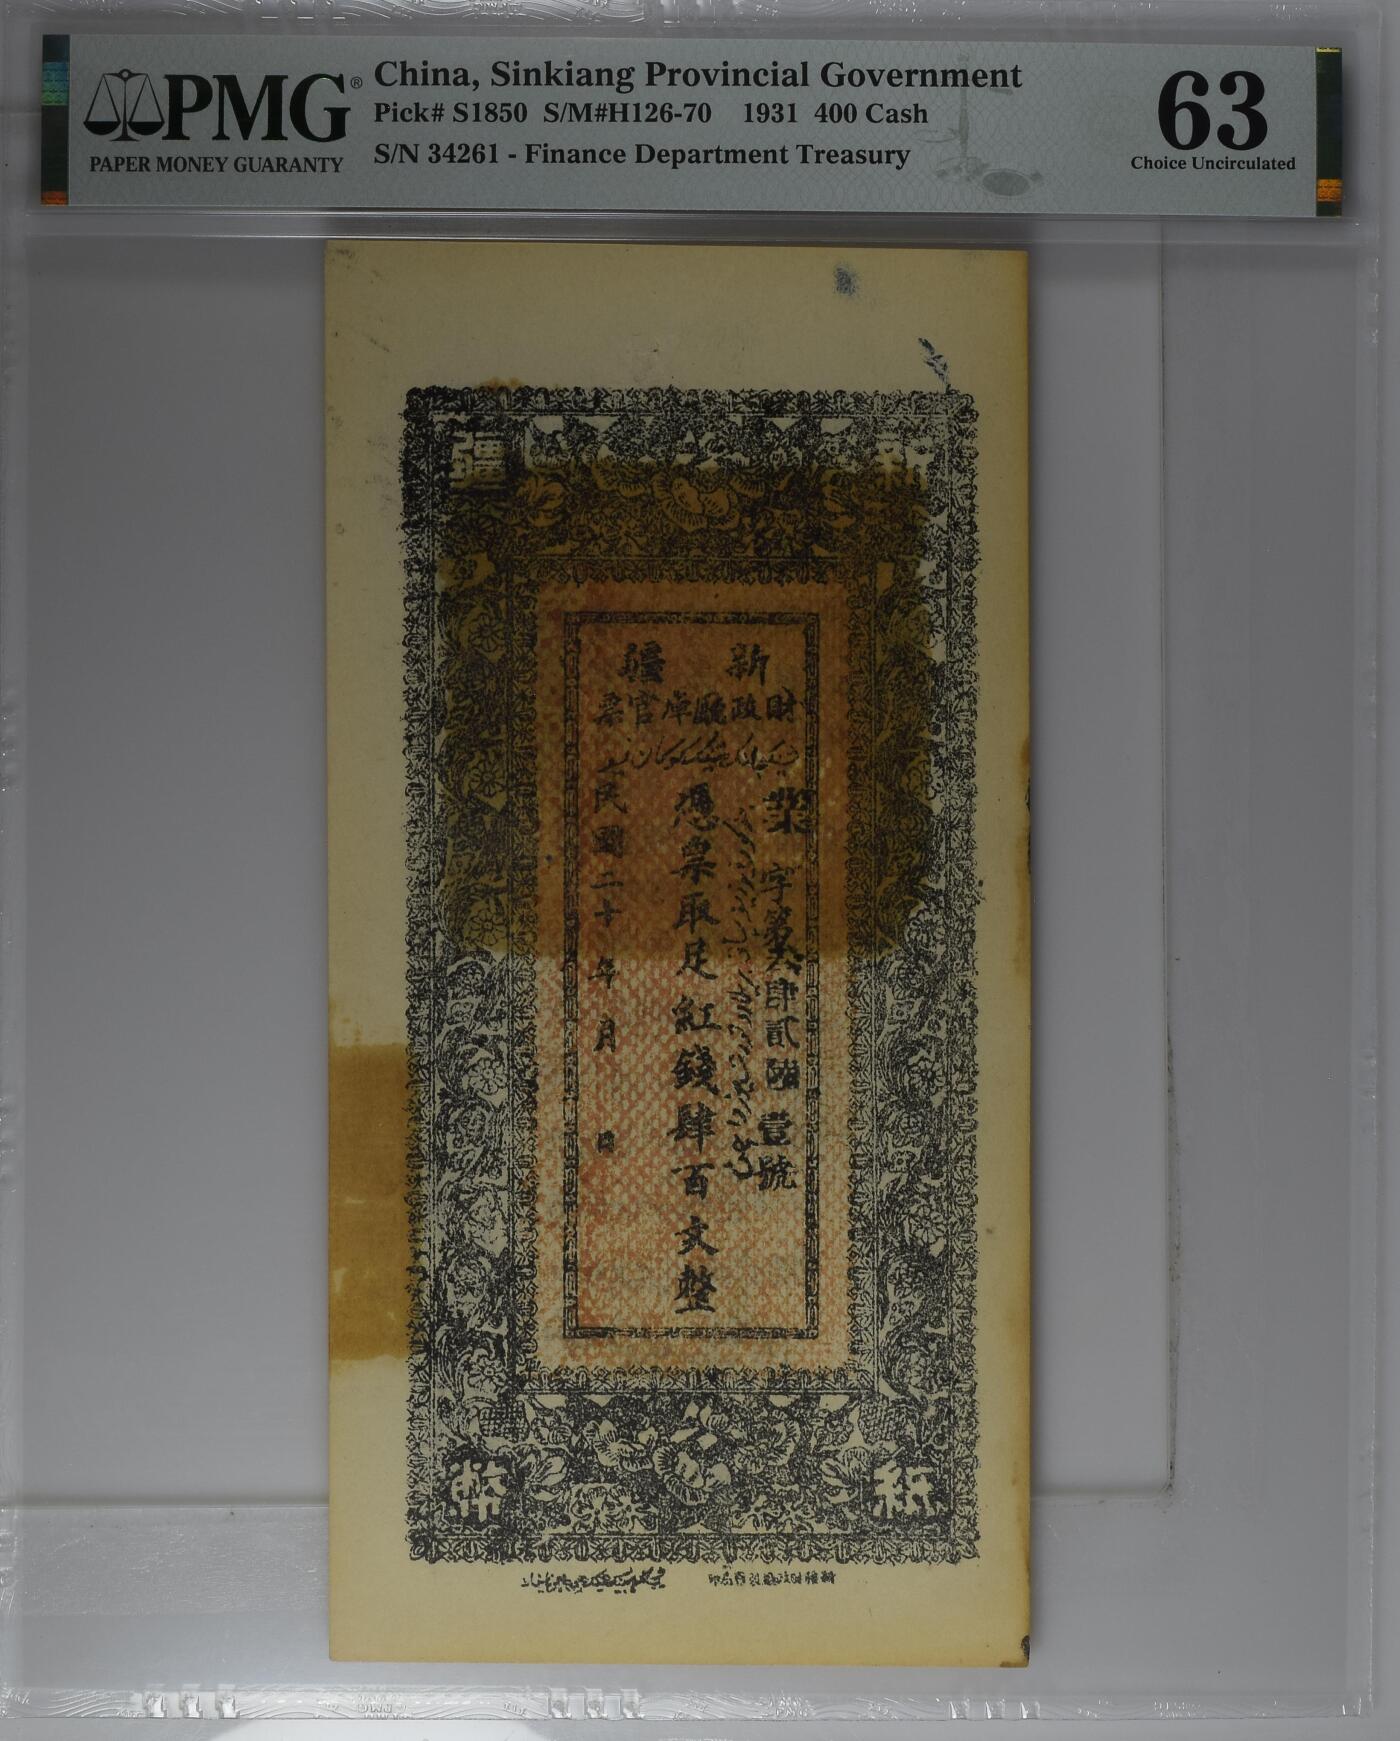 PMG®
PAPER MONEY GUARANTY
China, Sinkiang Provincial Government
Pick# S1850 S/M#H126-70 1931 400 Cash
S/N 34261 - Finance Department Treasury
63
Choice Uncirculated
新疆
新疆
財政廳庫官票
字第叁肆貳陸壹號
憑票取足紅錢肆百文整
民國二十年 月 日
紙幣